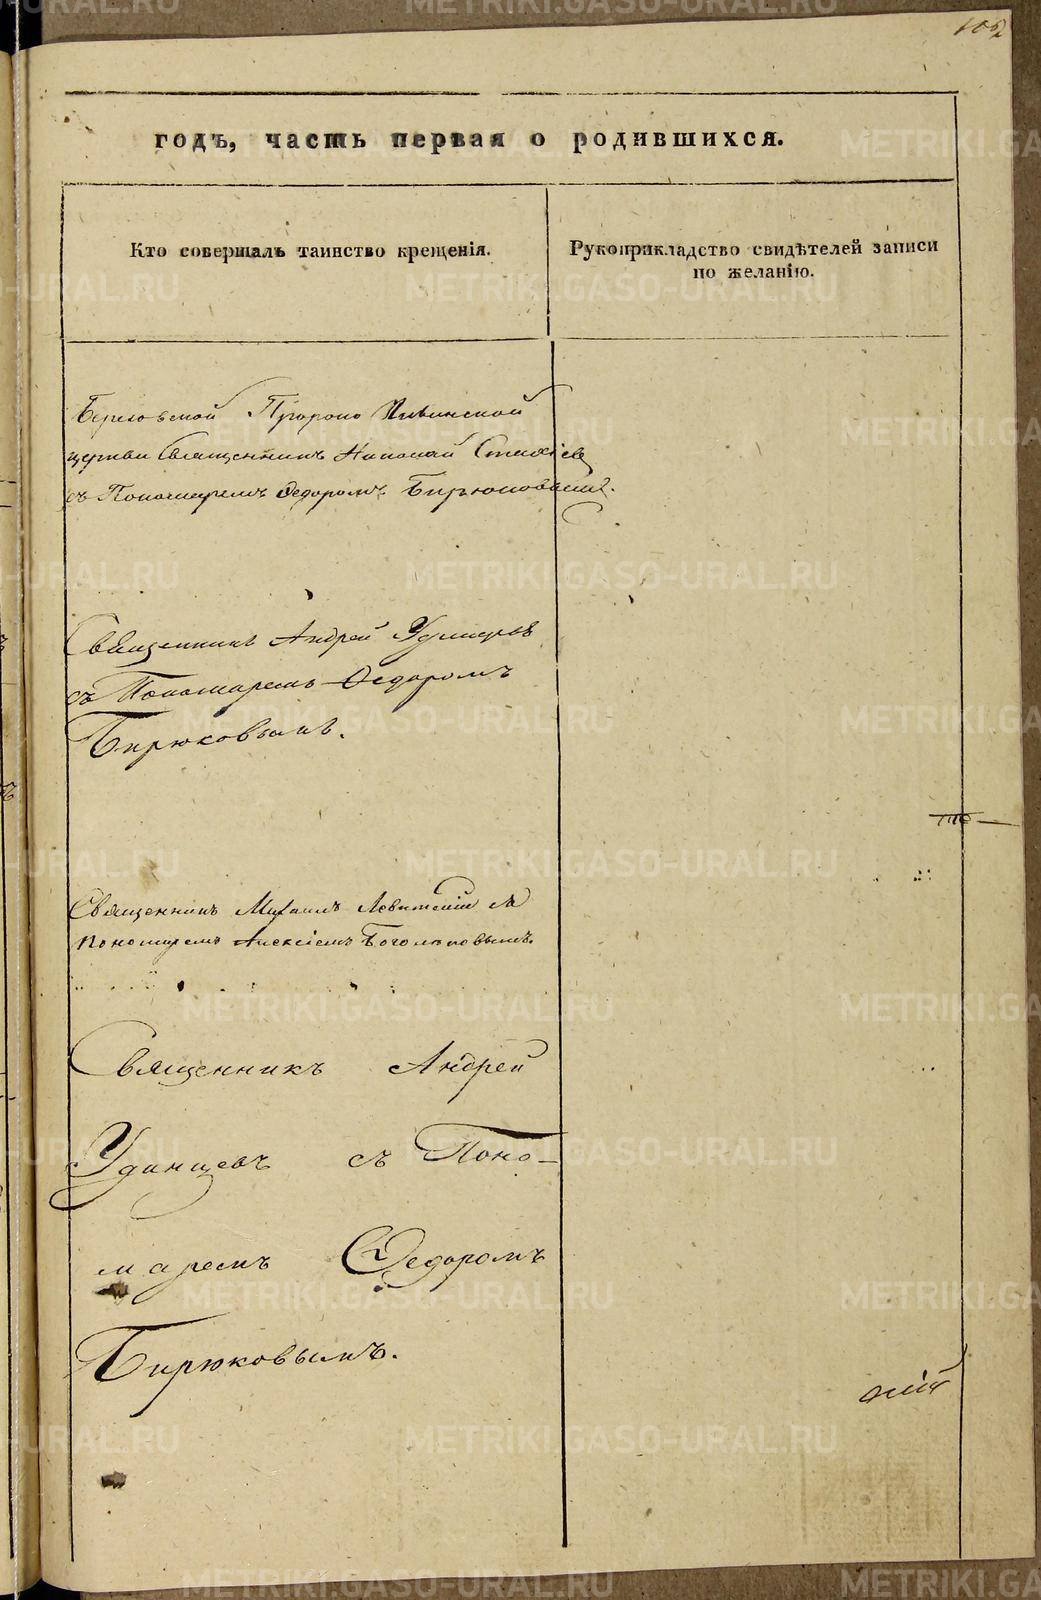 105
годъ, часть первая о родившихся.
Кто совершалъ таинство крещенія.
Рукоприкладство свидѣтелей записи
по желанію.
Пророко Ильинской
церкви Священникъ Николай
съ Пономаремъ Федоромъ Бирюковымъ.
Священникъ Андрей Удинцевъ
съ Пономаремъ Федоромъ
Бирюковымъ.
Священникъ Михаилъ Левитскій съ
Пономаремъ Алексіемъ Боголюбовымъ.
Священникъ Андрей
Удинцевъ съ Поно-
маремъ Федоромъ
Бирюковымъ.
METRIKI.GASO-URAL.RU